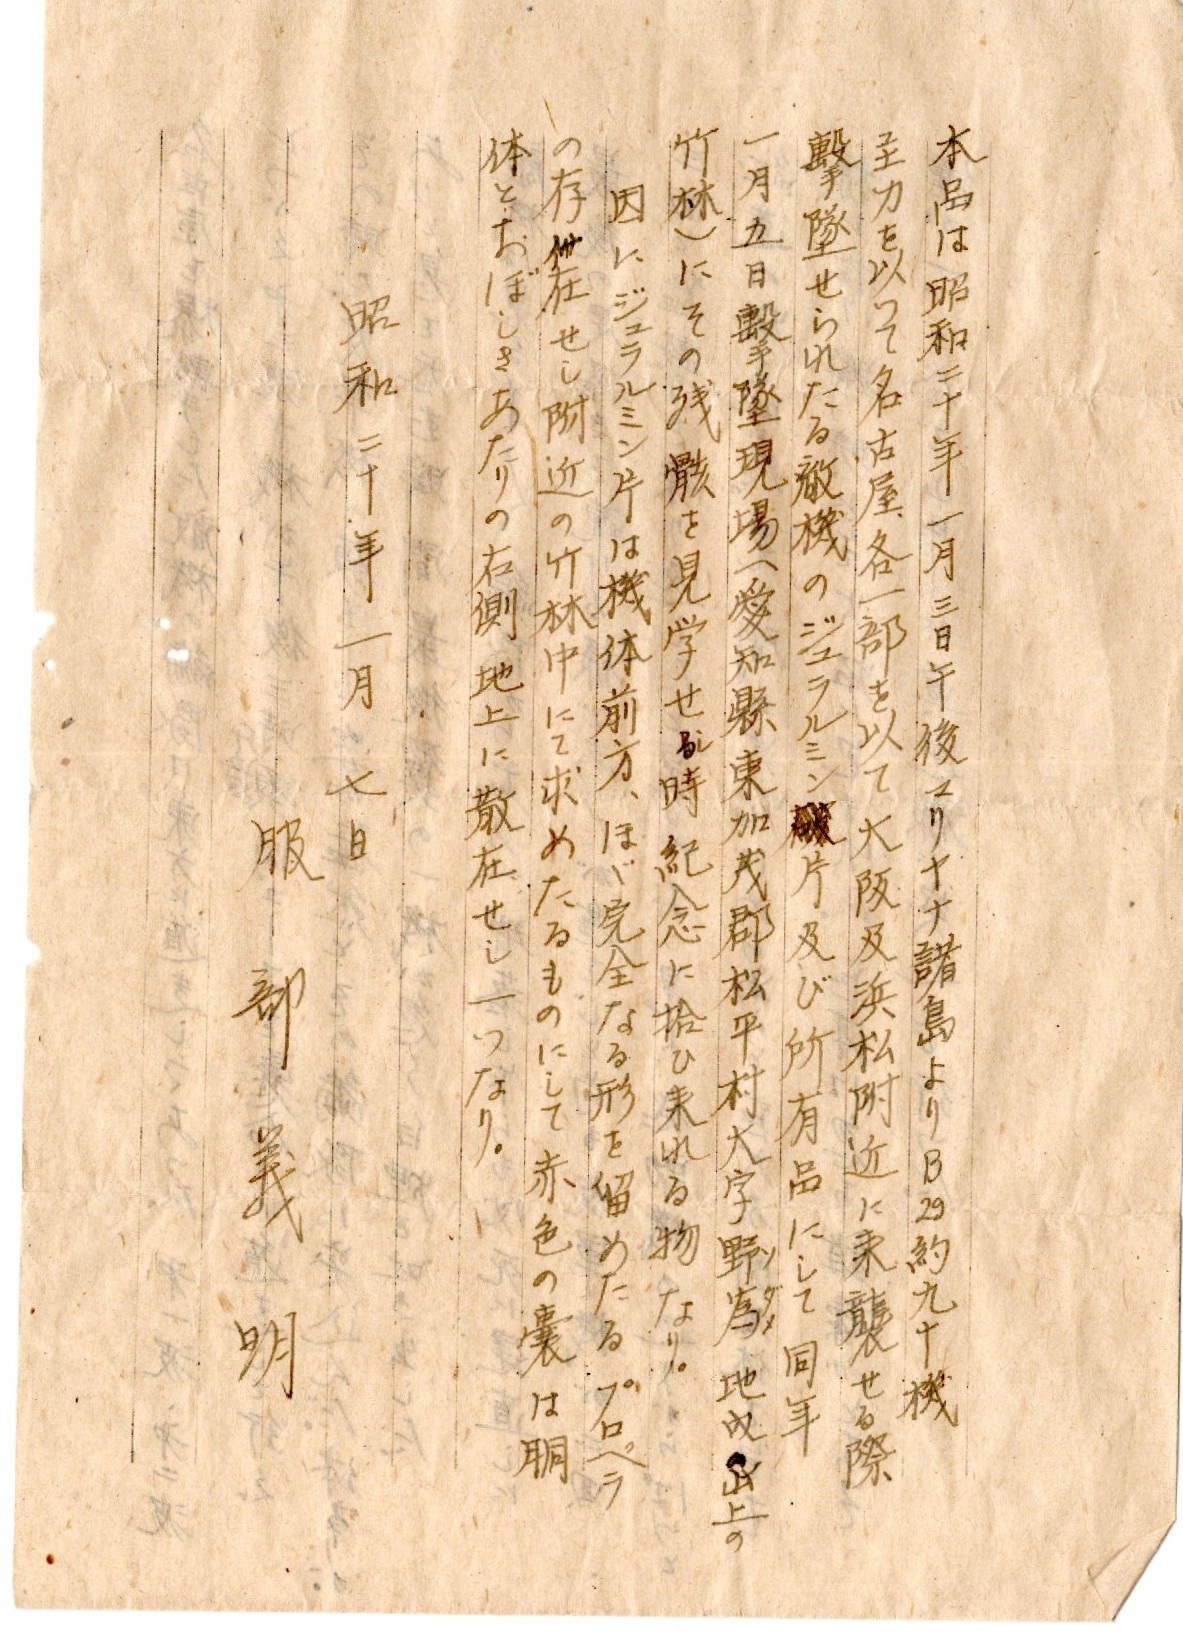 本品は昭和二十年一月三日午後マリヤナ諸島よりB29約九十機
主力を以つて名古屋、各一部を以て大阪及浜松附近に来襲せる際
擊墜せられたる敵機のジュラルミン破片及び所有品にして同年
一月五日擊墜現場(愛知縣東加茂郡松平村大字野為地内山上の
ソ ダメ
竹林)にその残骸を見学せし時紀念に拾ひ来れる物なり。
因にジュラルミン片は機体前方、ほゞ完全なる形を留めたるプロペラ
の存在せし附近の竹林中にて求めたるものにして赤色の嚢は胴
体とおぼしきあたりの右側地上に散在せし一つなり。
昭和二十年一月七日
服部義明